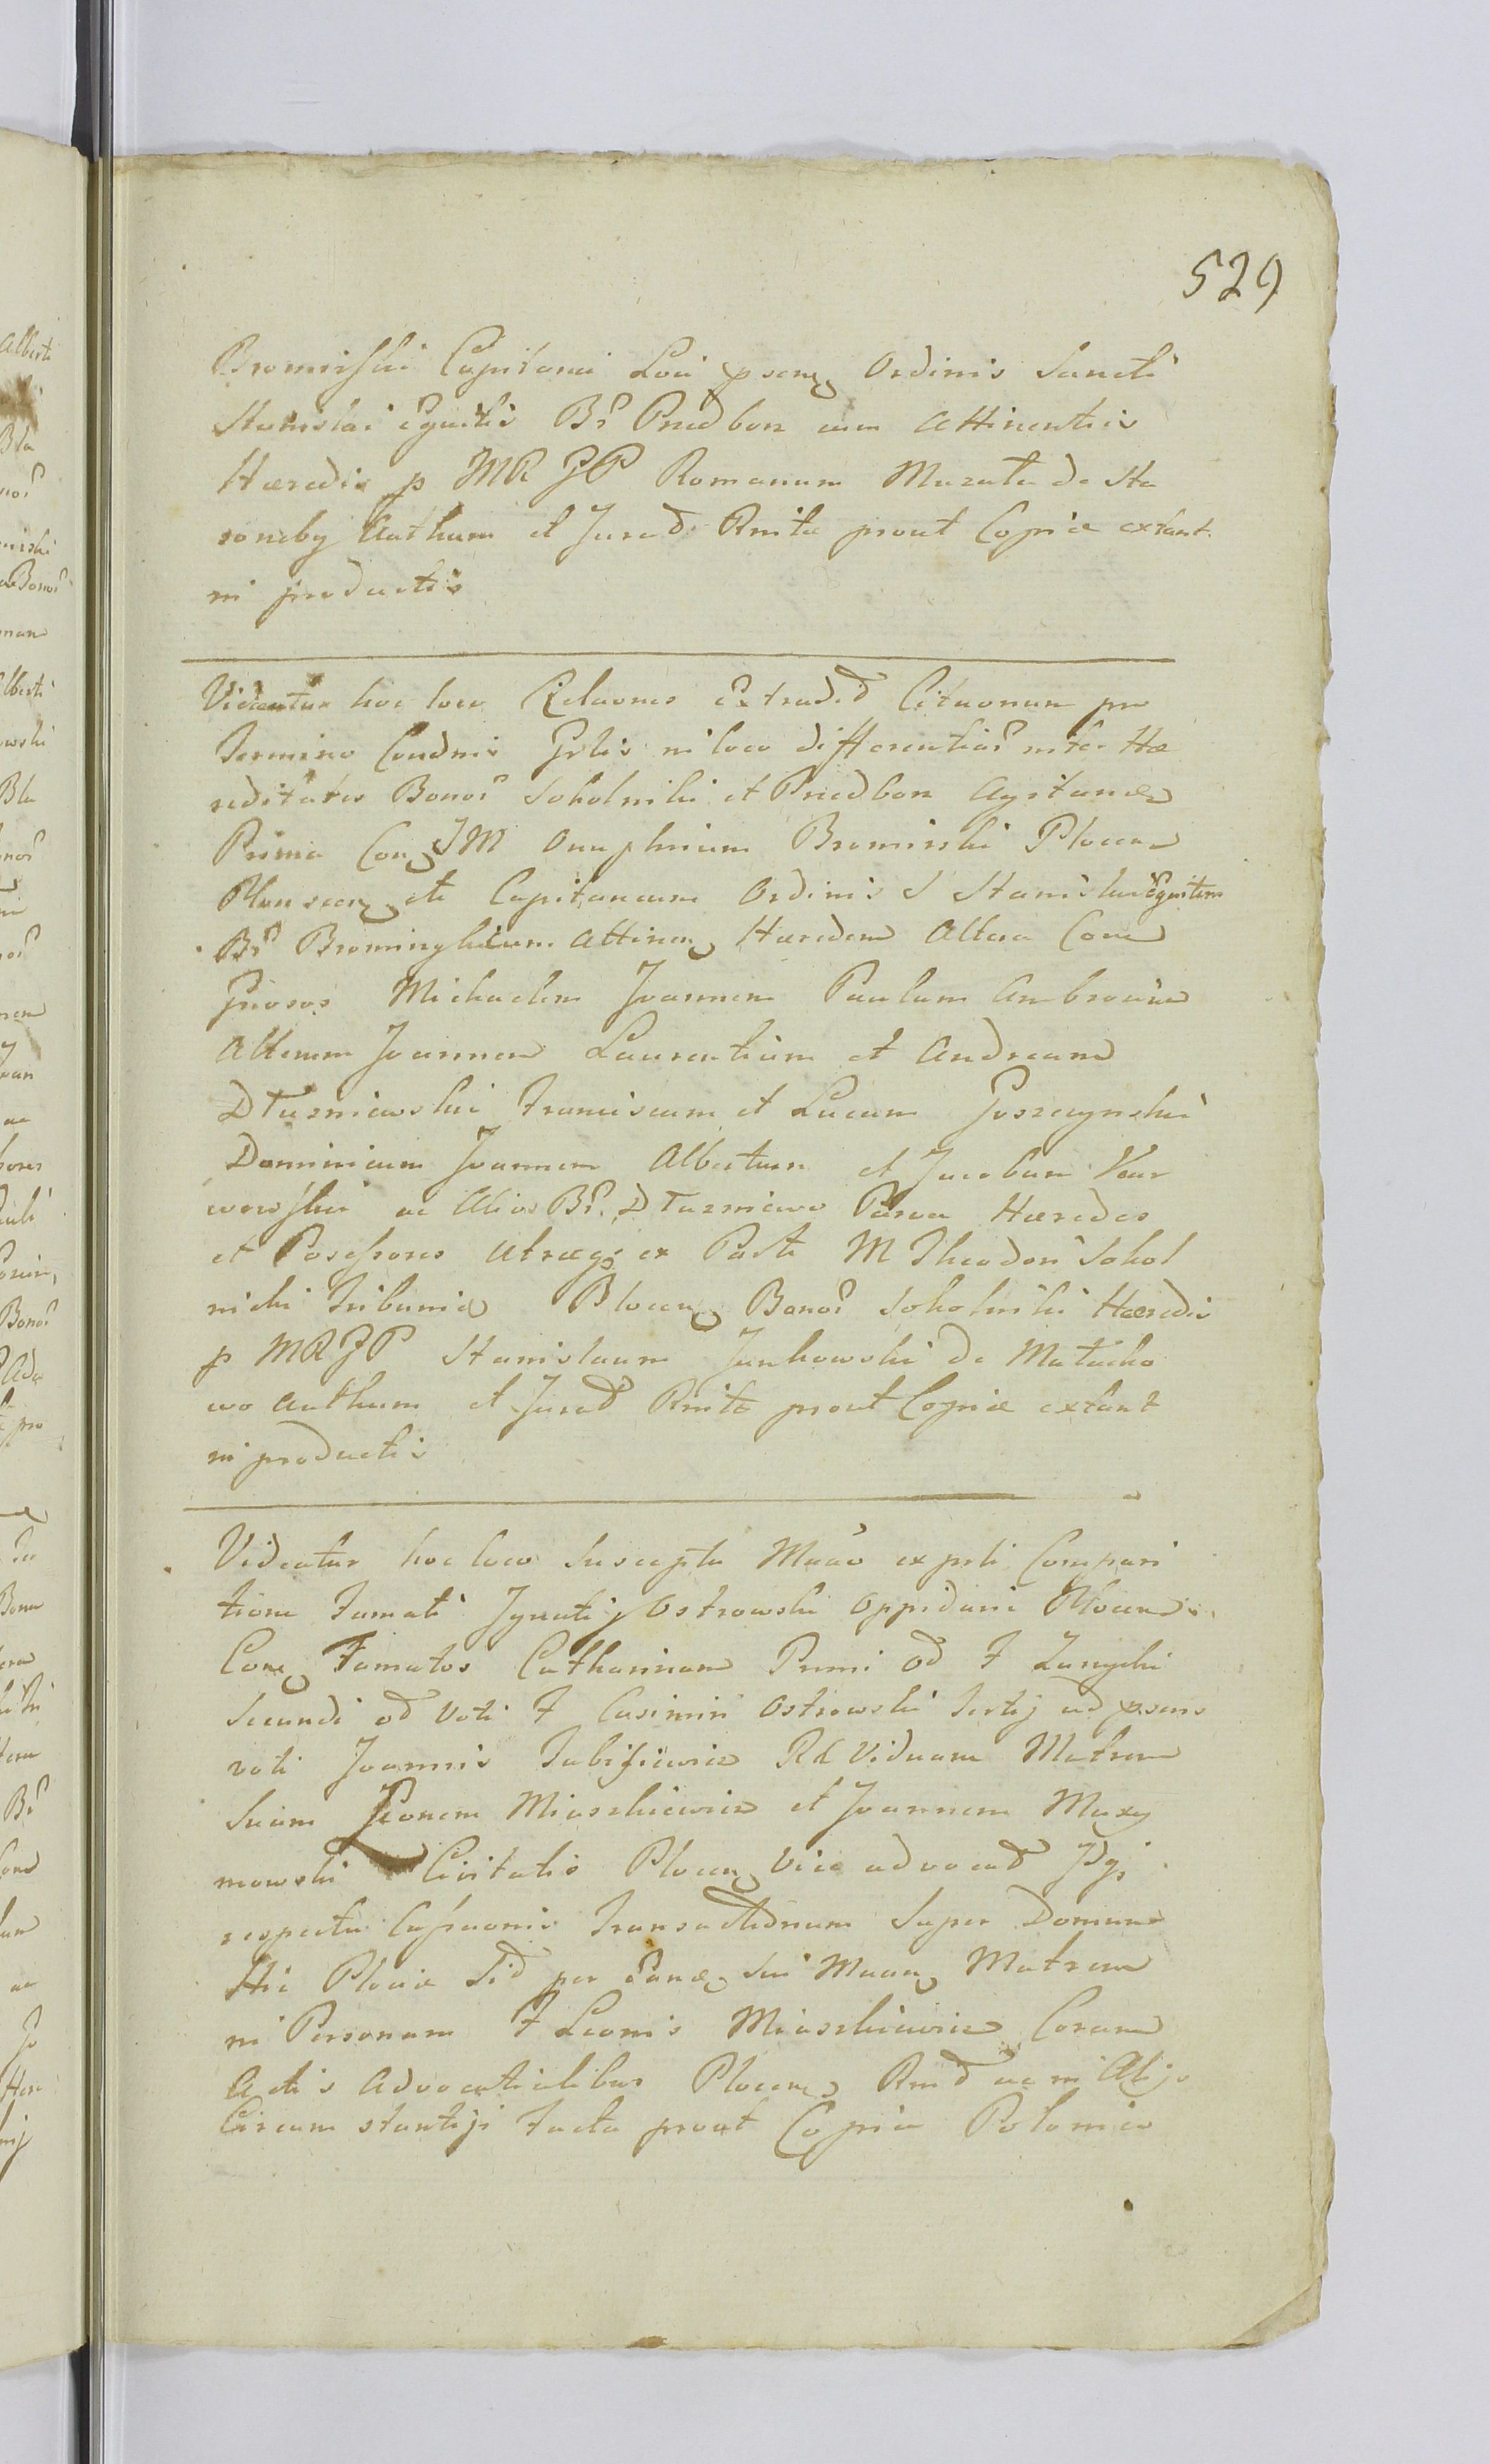 529
Bromirski Capitanei Loci psenę Ordinis Sancti
Stanislai Equitis Br Pniedborz cum Attinentiis
Hæredis p MR JP Romanum Murata de Sta
roneby Auth̄um et Jurad Rnita prout Copiæ extant
in productis
Videantur hoc loco Relaones Extradid Citaonum pro
Termino Condnis Grlis in loco differentiar inter Hæ
reditates Bonor Sokolniki et Pniedborz Agitanæ
Prima Con JM Onuphrium Bromirski Plocen
Plonscen etc Capitaneum Ordinis S Stanislai Equitem
Br Bromirz cum Attinen Hæredem Altera Con
Gnosos Michaelem Joannem Paulum Ambrosium
Alterum Joannem Laurentium et Andream
Dłuzniewskie Franciscum et Lucam Goszczynskie
Dominicum Joannem Albertum et Jacobum Naw
rowskie ac Alios Br. Dłuzniewo Parva Hæredes
et Possessores utræq ex Parte M Theodori Sokol
nicki Tribunid Plocen Bonor Sokolniki Hæredis
p MRJP Stanislaum Jankowski de Małacho
wo Authum et Jurad Rnita prout Copiæ extant
in productis
Videatur hoc loco Suscepta Manō ex prli Compari
tione Famati Ignatij Ostrowski Oppidani Plocen
Con Famatos Catharinam Primi od F Zanycki
Secundi od Voti F Casimiri Ostrowski Tertij ad psens
voti Joannis Rel Viduam Matrem
Suam Leonem Miaszkiewicz et Joannem Maxy
mowski Civitatis Plocen Vice advocad
respectu Cessaonis Transactionum Super Domum
Hic Plociæ Sid per Eand Sui Manan Matrem
in Personam F Leonis Miaszkiewicz Coram
Actis Advocatialibus Plocen Rnid ac in Alijs
Circum stantijs Facta prout Copia Polonico